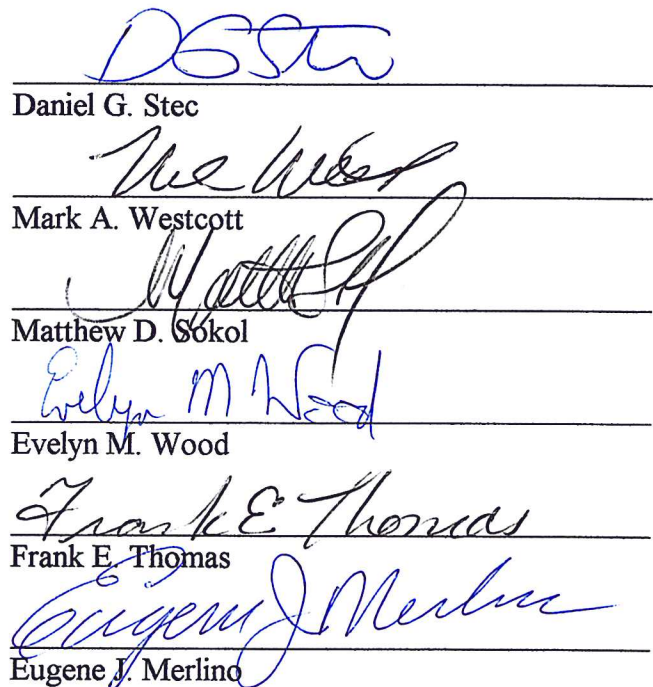 DGSte
Daniel G. Stec
Mark A. Westcott
Matthew D. Sokol
Evelyn M Wood
Evelyn M. Wood
Frank E Thomas
Frank E. Thomas
Eugene J Merlino
Eugene J. Merlino